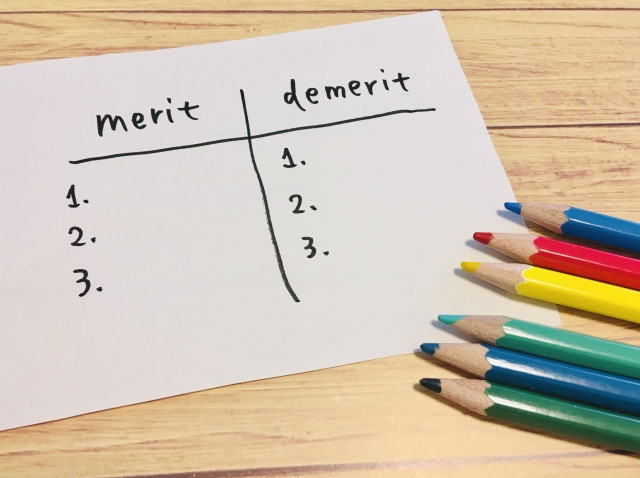 merit
1.
2.
3.
demerit
1.
2.
3.